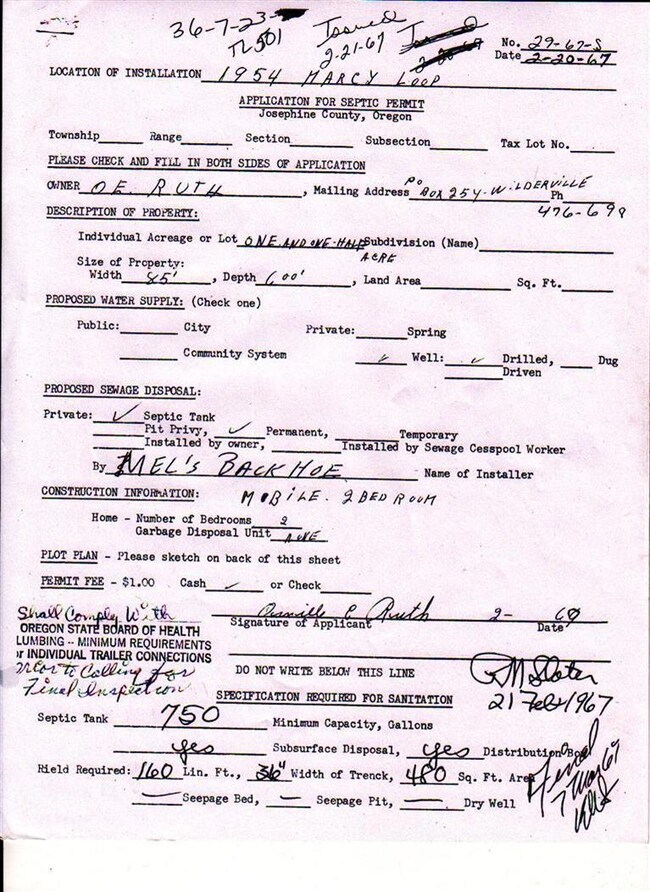 36-7-23
TL 501
Issued
2-21-67
Issued
No. 29-67-S
Date 2-20-67
LOCATION OF INSTALLATION 1954 MARCY LOOP
APPLICATION FOR SEPTIC PERMIT
Josephine County, Oregon
Township Range Section Subsection Tax Lot No.
PLEASE CHECK AND FILL IN BOTH SIDES OF APPLICATION
OWNER O.E. RUTH, Mailing Address PO BOX 254-WILDERVILLE
Ph
476-698
DESCRIPTION OF PROPERTY:
Individual Acreage or Lot ONE AND ONE-HALF ACRE Subdivision (Name)
Size of Property:
Width 85', Depth 600', Land Area Sq. Ft.
PROPOSED WATER SUPPLY: (Check one)
Public: City Private: Spring
Community System ✓ Well: ✓ Drilled, Dug
Driven
PROPOSED SEWAGE DISPOSAL:
Private: ✓ Septic Tank
Pit Privy, ✓ Permanent, Temporary
Installed by owner, Installed by Sewage Cesspool Worker
By MEL'S BACK HOE Name of Installer
CONSTRUCTION INFORMATION: MOBILE - 2 BED ROOM
Home - Number of Bedrooms 2
Garbage Disposal Unit NONE
PLOT PLAN - Please sketch on back of this sheet
PERMIT FEE - $1.00 Cash ✓ or Check
Shall Comply With
Orville E Ruth 2- 67
Signature of Applicant Date
OREGON STATE BOARD OF HEALTH
LUMBING -- MINIMUM REQUIREMENTS
or INDIVIDUAL TRAILER CONNECTIONS
Prior to Calling for
Final Inspection
DO NOT WRITE BELOW THIS LINE
R M Slater
21 Feb 1967
SPECIFICATION REQUIRED FOR SANITATION
Septic Tank 750 Minimum Capacity, Gallons
yes Subsurface Disposal, yes Distribution Box
Rield Required: 160 Lin. Ft., 36" Width of Trenck, 480 Sq. Ft. Area
Seepage Bed, — Seepage Pit, — Dry Well
Final
7 Mar 67